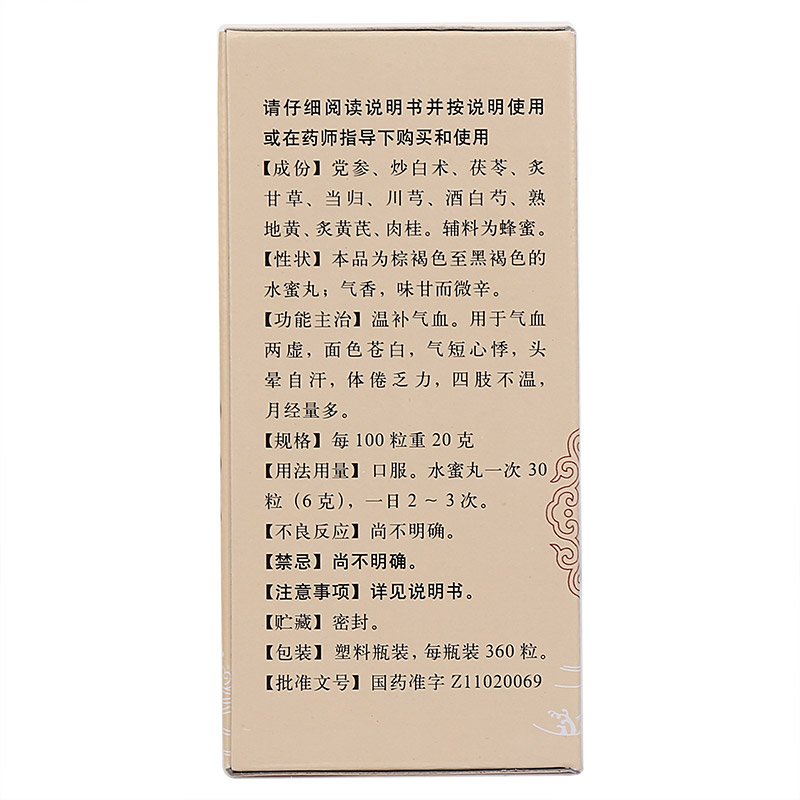 请仔细阅读说明书并按说明使用
或在药师指导下购买和使用
【成份】党参、炒白术、茯苓、炙
甘草、当归、川芎、酒白芍、熟
地黄、炙黄芪、肉桂。辅料为蜂蜜。
【性状】本品为棕褐色至黑褐色的
水蜜丸；气香，味甘而微辛。
【功能主治】温补气血。用于气血
两虚，面色苍白，气短心悸，头
晕自汗，体倦乏力，四肢不温，
月经量多。
【规格】每100粒重20克
【用法用量】口服。水蜜丸一次30
粒（6克），一日2～3次。
【不良反应】尚不明确。
【禁忌】尚不明确。
【注意事项】详见说明书。
【贮藏】密封。
【包装】塑料瓶装，每瓶装360粒。
【批准文号】国药准字Z11020069